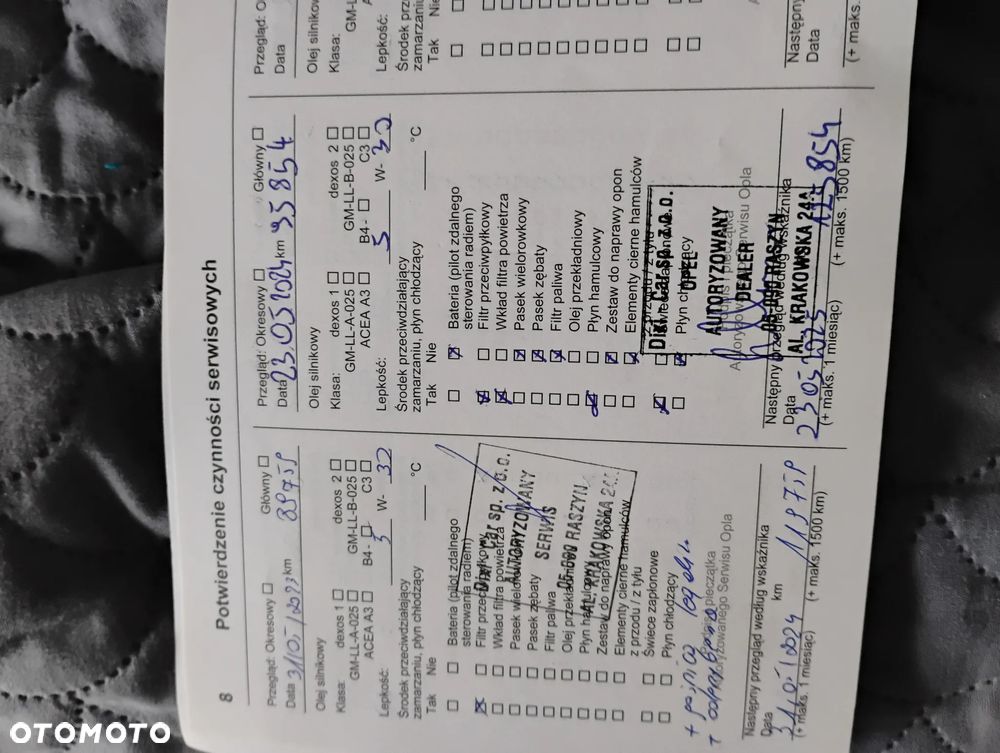 8 Potwierdzenie czynności serwisowych
Przegląd: Okresowy ☐ Główny ☐
Data km
Olej silnikowy
Klasa: dexos 1 ☐ dexos 2 ☐
GM-LL-A-025 ☐ GM-LL-B-025 ☐
ACEA A3 ☐ B4 - ☐ C3 ☐
Lepkość: 5 W-
°C
Środek przeciwdziałający
zamarzaniu, płyn chłodzący
Tak Nie
Bateria (pilot zdalnego
sterowania radiem)
Filtr przeciwpyłkowy
Wkład filtra powietrza
Pasek wielorowkowy
Pasek zębaty
Filtr paliwa
Olej przekładniowy
Płyn hamulcowy
Zestaw do naprawy opon
Elementy cierne hamulców
z przodu / z tyłu
Świece zapłonowe
Płyn chłodzący
Dixi-Car sp. z o.o.
AUTORYZOWANY
SERWIS
05-090 RASZYN
AL. KRAKOWSKA
Autoryzowanego Serwisu Opla
Następny przegląd według wskaźnika
Data km
(+ maks. 1 miesiąc) (+ maks. 1500 km)
Przegląd: Okresowy ☐ Główny ☐
Data 23.05.2024 km 95854
Olej silnikowy
Klasa: dexos 1 ☐ dexos 2 ☐
GM-LL-A-025 ☐ GM-LL-B-025 ☐
ACEA A3 ☐ B4 - ☐ C3 ☐
Lepkość: 5 W- 30
°C
Środek przeciwdziałający
zamarzaniu, płyn chłodzący
Tak Nie
Bateria (pilot zdalnego
sterowania radiem)
Filtr przeciwpyłkowy
Wkład filtra powietrza
Pasek wielorowkowy
Pasek zębaty
Filtr paliwa
Olej przekładniowy
Płyn hamulcowy
Zestaw do naprawy opon
Elementy cierne hamulców
z przodu / z tyłu
Świece zapłonowe
Płyn chłodzący
Dixi-Car sp. z o.o.
OPEL
AUTORYZOWANY
DEALER
05-090 RASZYN
AL. KRAKOWSKA 24A
Autoryzowanego Serwisu Opla
Następny przegląd według wskaźnika
Data 23 05 2025
(+ maks. 1 miesiąc) (+ maks. 1500 km)
Przegląd:
Data
Olej silnikowy
Klasa:
Lepkość:
Środek
zamarzaniu,
Tak Nie
Następny
Data
(+ maks.
OTOMOTO